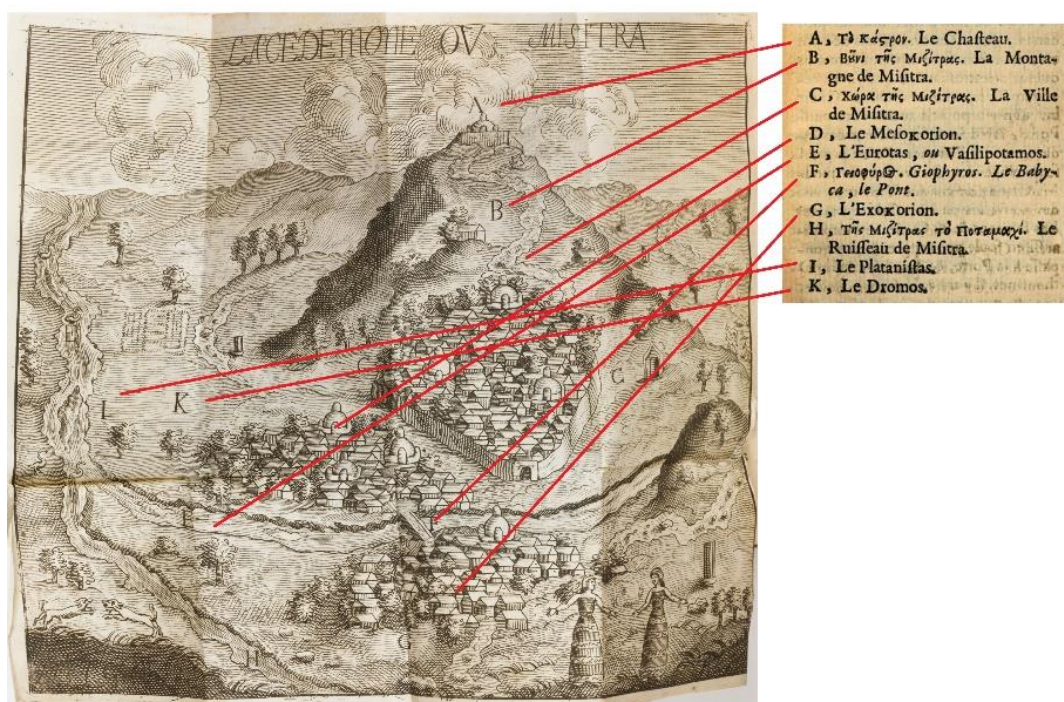 LACEDEMONE OV MISITRA
A
B
C
I K
E
G
H
A, Τὸ κάϛρον. Le Chaſteau.
B, Βȣνι τῆς Μιζίτρας. La Monta-
gne de Miſitra.
C, χώρα τῆς Μιζίτρας. La Ville
de Miſitra.
D, Le Meſoκorion.
E, L'Eurotas, ou Vaſilipotamos.
F, Giophyros. Le Baby-
ca, le Pont.
G, L'Exoκorion.
H, Τῆς Μιζίτρας τὸ Ποταμαχί. Le
Ruiſſeau de Miſitra.
I, Le Plataniſtas.
K, Le Dromos.